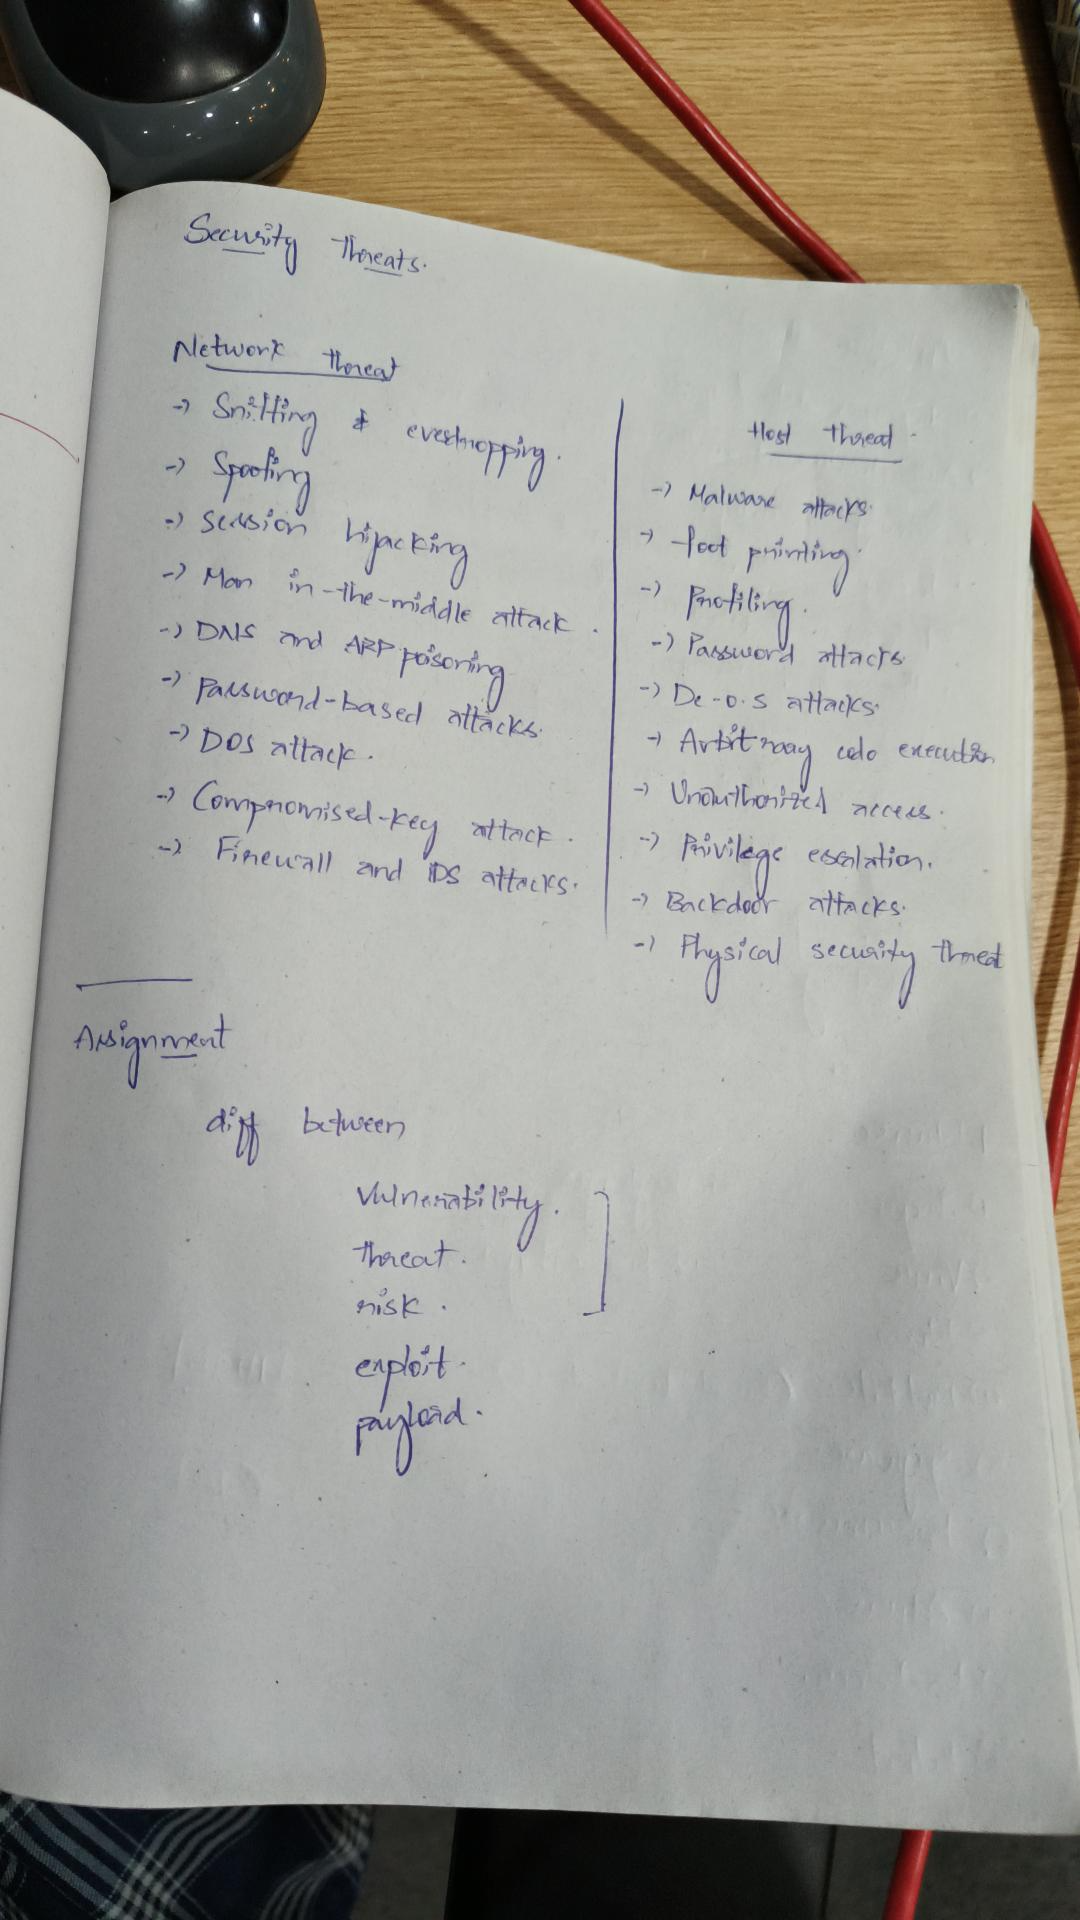 Security Threats.
Network threat
-> Sniffing & evesdropping.
-> Spoofing
-> Session hijacking
-> Man in-the-middle attack.
-> DNS and ARP poisoning
-> Password-based attacks.
-> DOS attack.
-> Compromised-key attack.
-> Firewall and IDS attacks.
Host threat
-> Malware attacks.
-> foot printing.
-> Profiling.
-> Password attacks
-> De-o.s attacks.
-> Arbitrary code execution
-> Unauthorized access.
-> Privilege escalation.
-> Backdoor attacks.
-> Physical security threat
Assignment
diff between
Vulnerability.
threat.
risk.
exploit.
payload.